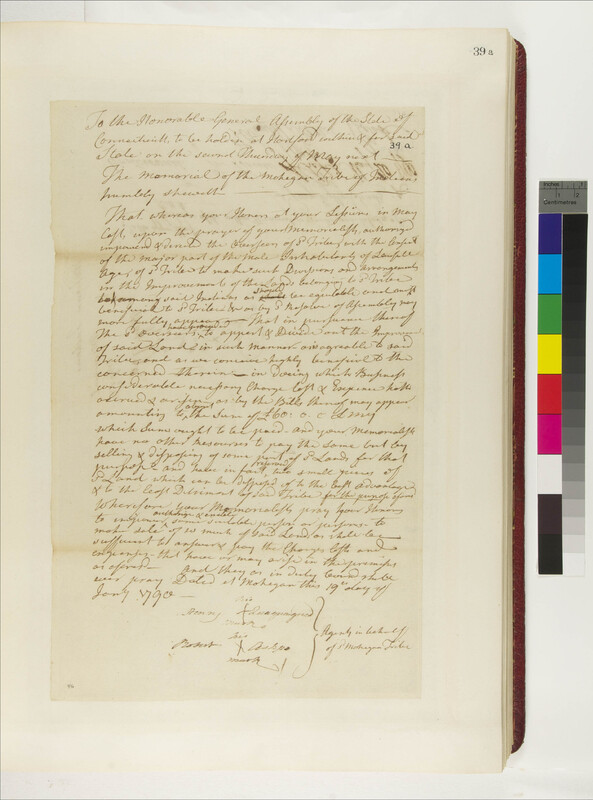 39 a
To the Honorable General Assembly of the State of
Connecticutt to be holden at Hartford within & for said
State on the second Thursday of May next
39 a
The Memorial of the Mohegan Tribe of Indians
humbly sheweth
That whereas your Honors at your Sessions in May
last, upon the prayer of your Memorialists, authorized
impowered & directed the Overseers of sd Tribe, with the Consent
of the major part of the Male Inhabitants of Lawfull
Age of sd Tribe to make such Divisions and Arrangements
in the Improvements of the Land belonging to sd Tribe
among said Indians as should be equitable and most
beneficial to sd Tribe & as by sd Resolve of Assembly may
more fully appear that in pursuance thereof
The sd Overseers have proceeded to apport & Divide out the Improvmt
of said Lands in such manner as is agreable to said
Tribe and as we conceive highly beneficial to the
concerned therein in Doeing which Business
considerable necessary Charge Cost & Expence hath
accrued & arisen, as by the Bills thereof may appear
amounting to about the Sum of £60: 0. 0 L Mny
which Sums ought to be paid. And your Memorialists
have no other Resources to pay the same but by
selling & disposing of some part of sd Lands for that
purpose and have in fact reserved two small pieces of
sd Land which can be disposed of to the best advantage
& to the least Detriment of said Tribe for the purpose aforesd
Wherefore your Memorialists pray your Honors
to authorize & enable some suitable person or persons to
make sale of so much of said Land as shall be
sufficient to answer & pay the Charges Costs and
expences that have or may arise in the premises
as aforesd And they as in duty bound shall
ever pray Dated at Mohegan this 19th day of
Jany 1790
his
Henry X Quaquaquid
mark
his
Robert X Ashpo
mark
Agents in behalf
of sd Mohegan Tribe